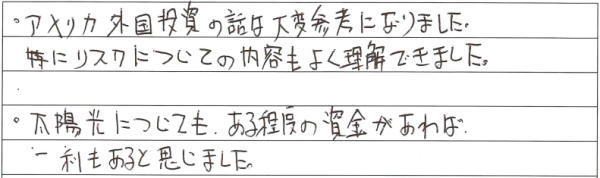 ・アメリカ外国投資の話は大変参考になりました。
特にリスクについての内容もよく理解できました。
・太陽光についても、ある程度の資金があれば、
一利もあると思じました。